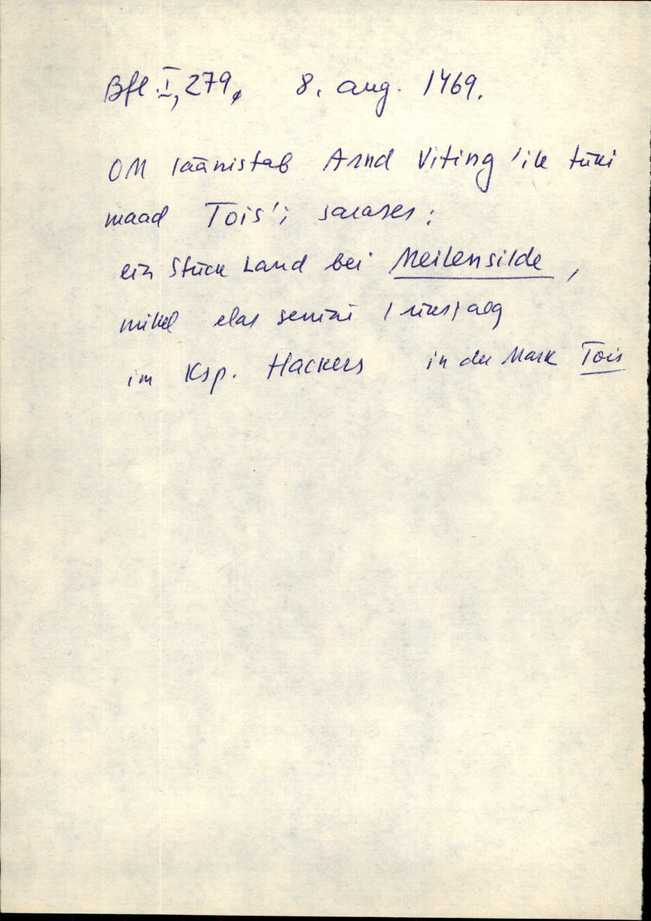 Bfl. I, 279, 8. aug. 1469.
OM läänistab Arnd Viting'ile tüki
maad Tois'i sarases:
ein Stück Land bei Meilensilde,
millel elas senini 1 üksjalg
im Ksp. Hackers in der Mark Tois